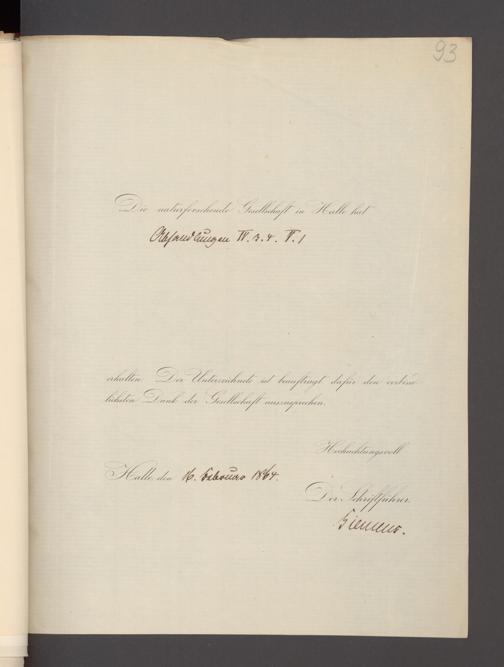 93
Die naturforschende Gesellschaft in Halle hat
Abhandlungen IV. 3. 4. V. 1
erhalten. Der Unterzeichnete ist beauftragt dafür den verbind
lichsten Dank der Gesellschaft auszusprechen.
Hochachtungsvoll
Halle den 16. Februar 1864.
Der Schriftführer